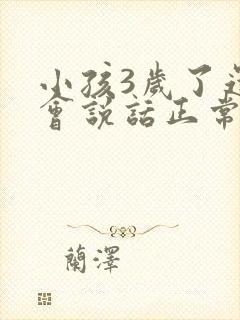 小孩3歲了
會說話正常
蘭澤